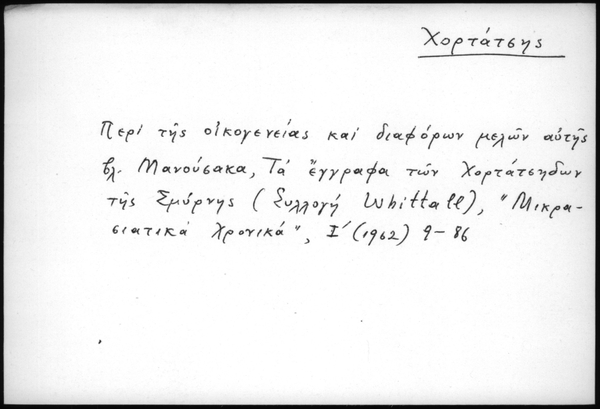 Χορτάτσης
Περί τῆς οἰκογενείας καί διαφόρων μελῶν αὐτῆς
βλ. Μανούσακα, Τά ἔγγραφα τῶν Χορτάτσηδων
τῆς Σμύρνης (Συλλογή Whittall), "Μικρα-
σιατικά Χρονικά", Ι΄ (1962) 9-86